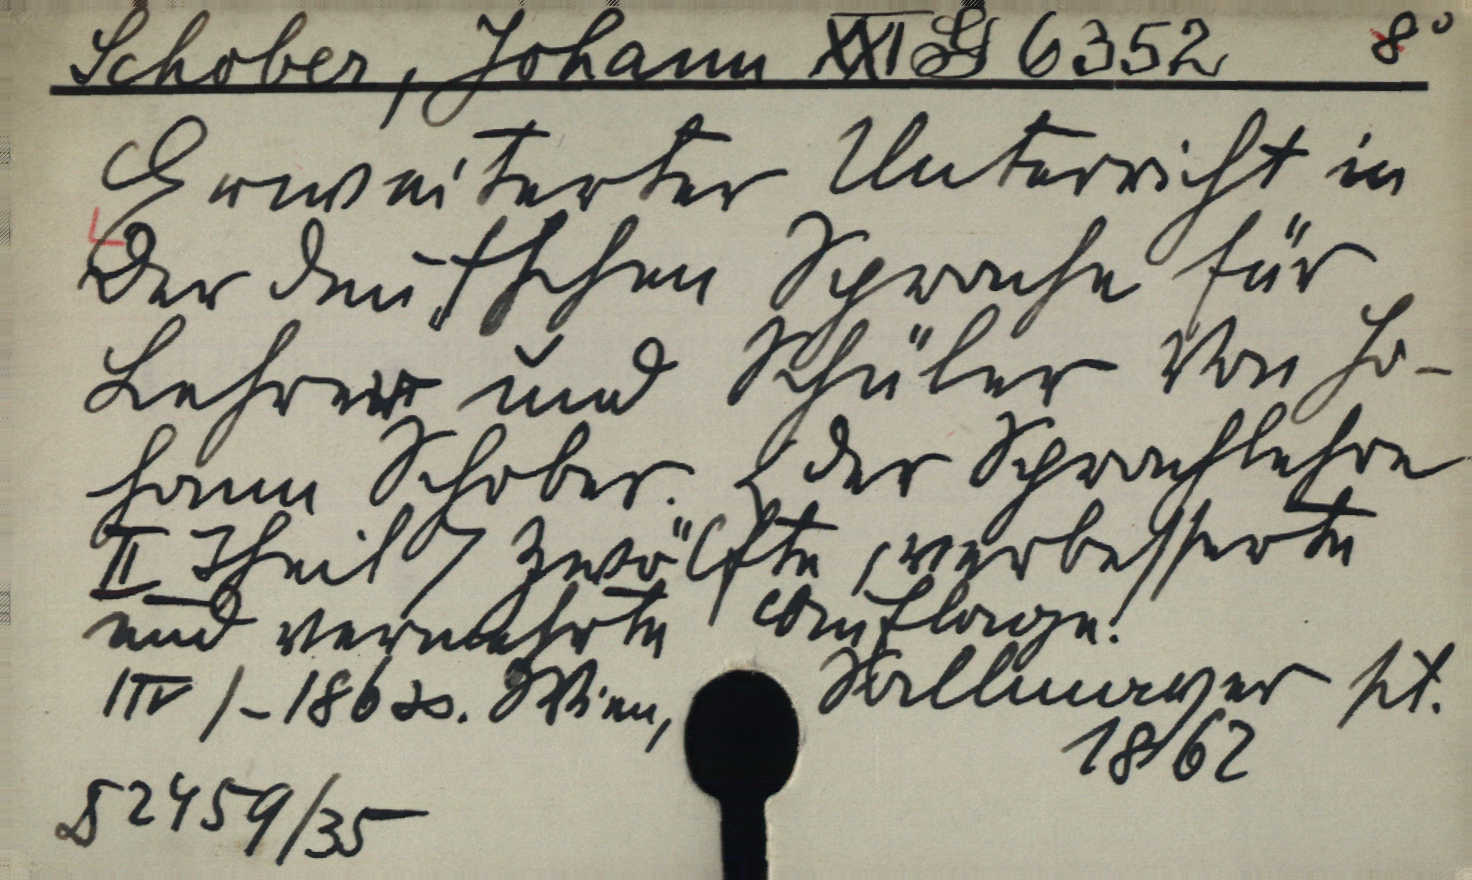 Schober, Johann XXI G 6352 8°
Erweiterter Unterricht in
der deutschen Sprache für
Lehrer und Schüler von Jo-
hann Schober. (der Sprachlehre
II Theil) Zwölfte, verbesserte
und vermehrte Auflage.
IV /-186 S. Wien, Sallmayer
1862
D 2459/35